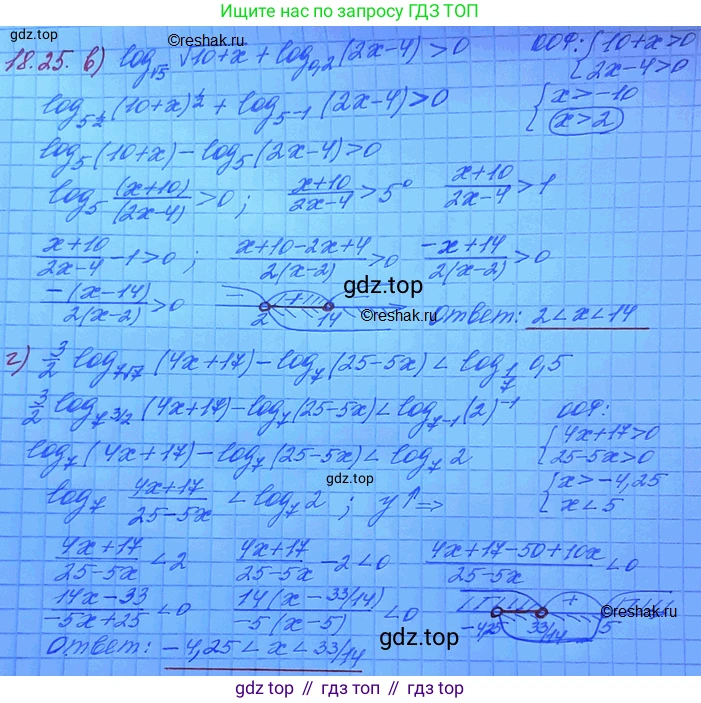 Ищите нас по запросу ГДЗ ТОП
gdz.top
©reshak.ru
18.25. в) log_√5 √10+x + log_0,2 (2x-4) > 0 ООФ: { 10+x>0
{ 2x-4>0
log_5^½ (10+x)^½ + log_5^-1 (2x-4) > 0 { x>-10
{ x>2
log_5 (10+x) - log_5 (2x-4) > 0
log_5 (x+10)/(2x-4) > 0 ; (x+10)/(2x-4) > 5^0 (x+10)/(2x-4) > 1
(x+10)/(2x-4) - 1 > 0 ; (x+10-2x+4)/2(x-2) > 0 (-x+14)/2(x-2) > 0
gdz.top
-(x-14)/2(x-2) > 0 - + 2 14 Ответ: 2<x<14
©reshak.ru
г) 3/2 log_7√7 (4x+17) - log_7 (25-5x) < log_1/7 0,5
3/2 log_7^3/2 (4x+17) - log_7 (25-5x) < log_7^-1 (2)^-1 ООФ:
{ 4x+17>0
log_7 (4x+17) - log_7 (25-5x) < log_7 2 { 25-5x>0
gdz.top
log_7 (4x+17)/(25-5x) < log_7 2 ; y↑⇒ { x>-4,25
{ x<5
(4x+17)/(25-5x) < 2 (4x+17)/(25-5x) - 2 < 0 (4x+17-50+10x)/(25-5x) < 0
(14x-33)/(-5x+25) < 0 14(x-33/14)/-5(x-5) < 0 - + -4,25 33/14 5
©reshak.ru
gdz.top
Ответ: -4,25 < x < 33/14
gdz top // гдз топ // gdz.top